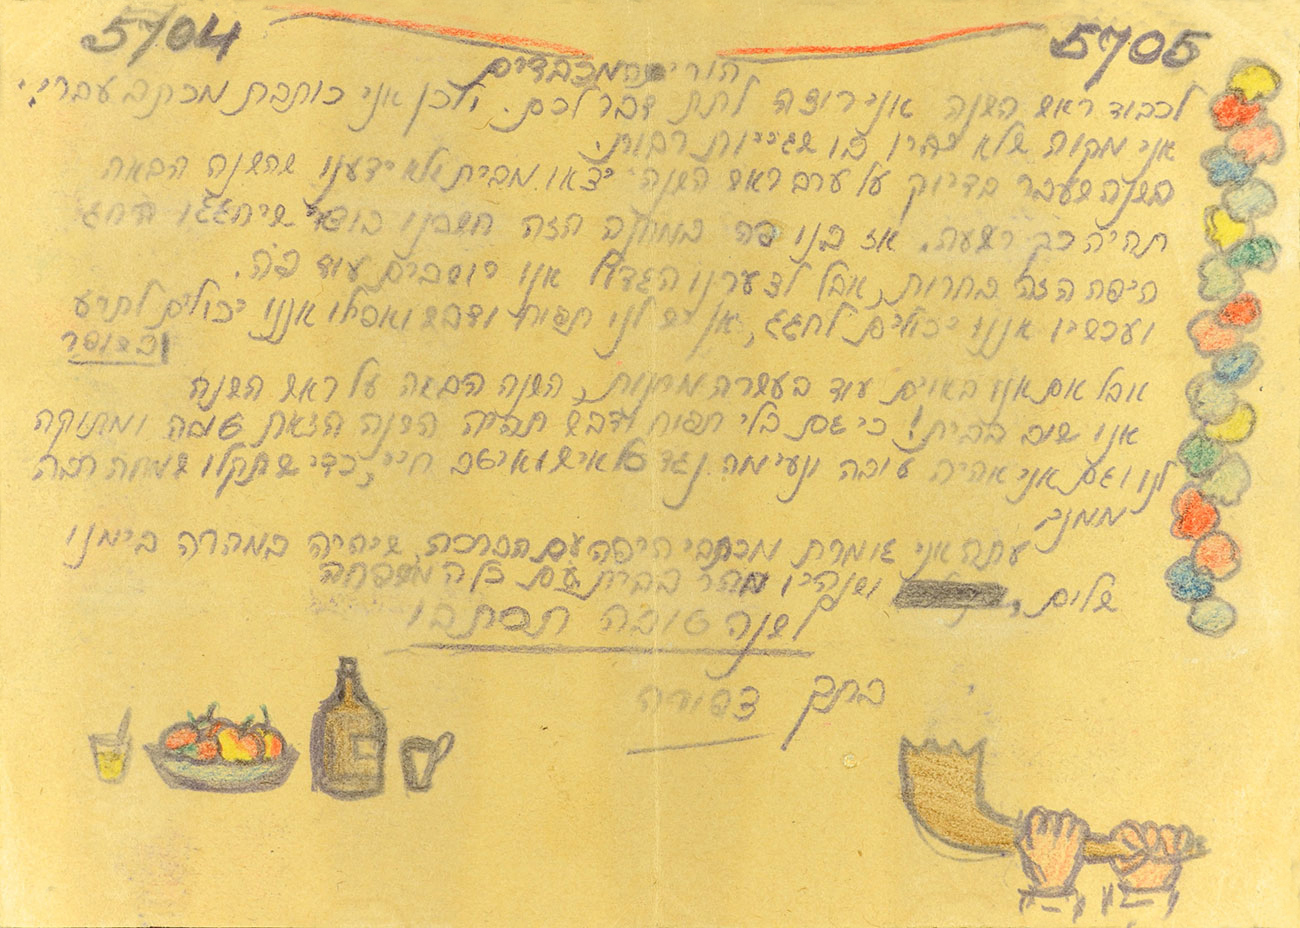 5704 5705
הורי המכבדים
לכבוד ראש השנה אני רוצה לתת דבר לכם. ולכן אני כותבת מכתב עברי.
אני מקוה שלא יהיו בו שגייות רבות.
בשנה שעבר בדיוק על ערב ראש השנה יצאו מבית ולא ידענו שהשנה הבאה
תהיה כך רשעה. אז בנו פה במחנה הזה חשבנו שיחגגו החג
היפה הזה בחרות, אבל לצערנו הגדול אנו יושבים עוד פה.
ועכשיו אננו יכולים לחגג, אין לנו תפוח ודבש ואפילו אננו יכולים לתקע
בשופר
אבל אם אנו באים עוד בעשרה מחנות, השנה הבאה על ראש השנה
אנו שוב בבית! כי גם בלי תפוח ודבש תהיה השנה הזאת טובה ומתוקה
לנו וגם אני אהיה טובה ונעימה נגד כל איש ואיש חיי, כדי שתקבלו שמחה רבה
ממני.
עתה אני גומרת מכתבי היפה עם הברכה, שיהיה במהרה בימנו
שלום, ושנהיו מהר בבית עם כל המשפחה
לשנה טובה תכתבו
בתך צפורה